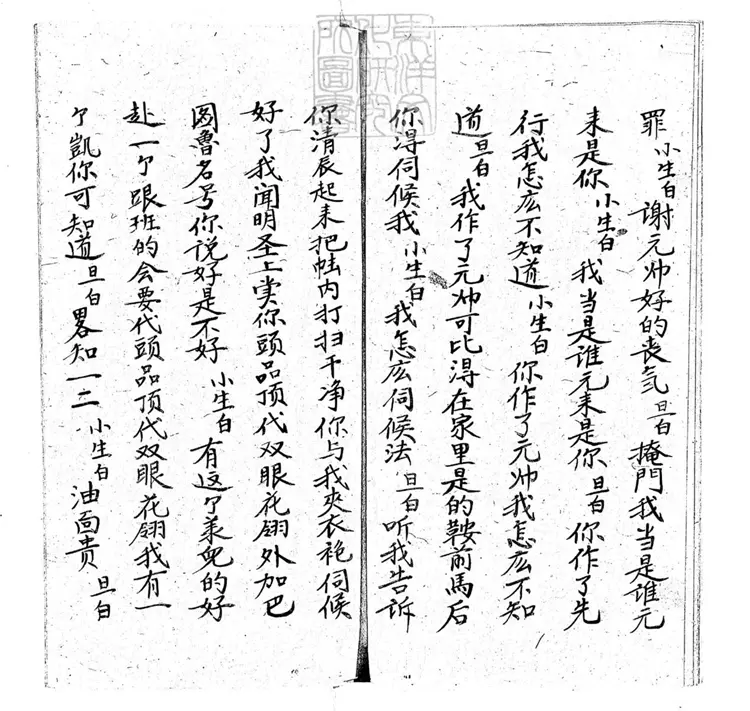 罪小生白谢元帅好的丧气旦白掩門我当是谁元
来是你小生白我当是谁元来是你旦白你作了先
行我怎庅不知道小生白你作了元帅我怎庅不知
道旦白我作了元帅可比淂在家里是的鞍前馬后
你淂伺候我小生白我怎庅伺候法旦白听我告诉
你清辰起来把帐内打扫干净你与我夹衣袍伺候
好了我闻明圣上赏你頭品顶代双眼花翎外加巴
图鲁名号你说好是不好小生白有这个羕兒的好
赴一个跟班的会要代頭品顶代双眼花翎我有一
个凱你可知道旦白畧知一二小生白油面贵旦白
東洋文化研究所圖